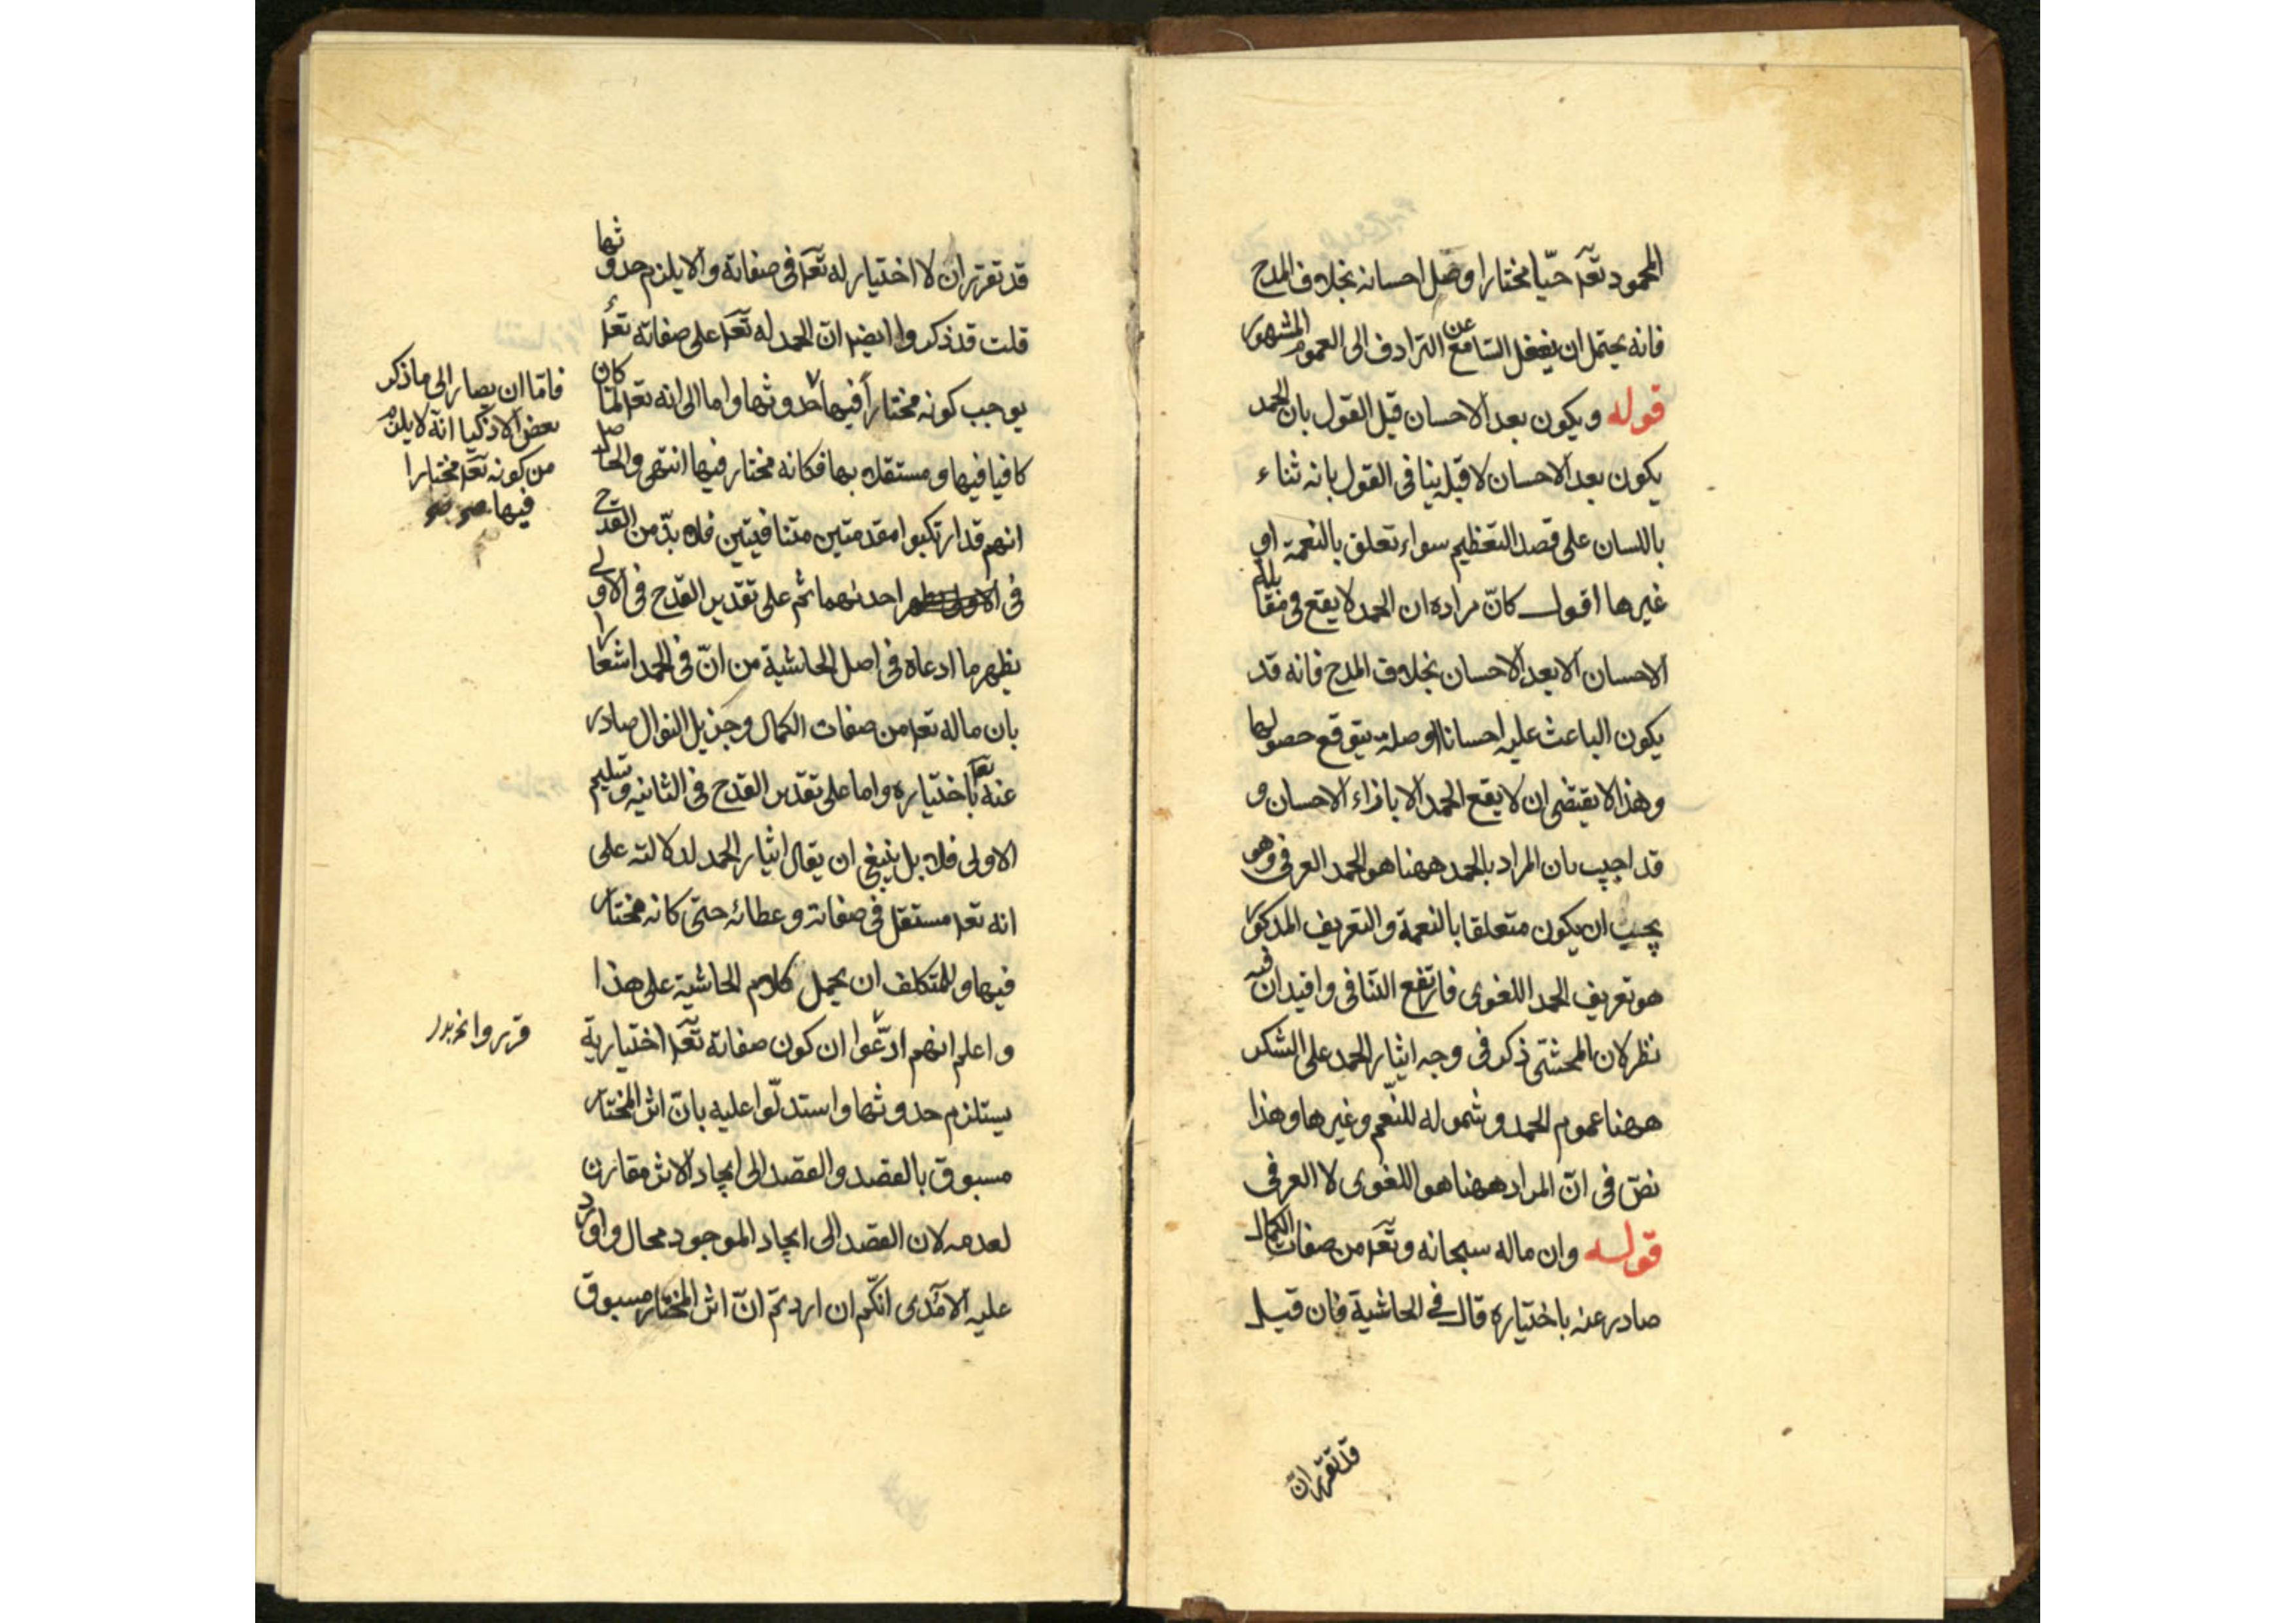 المحمود تعہ حيّا مختارا وصل احسانه بخلاف المدح
فانه يحتمل ان يغفل السّامع عن الترادف الى العموم المشهور
قوله ويكون بعد الاحسان قيل القول بان الحمد
يكون بعد الاحسان لا قبله ينافى القول بانه ثناء
باللسان على قصد التعظيم سواء تعلق بالنعمة او
غيرها اقول كانّ مراده ان الحمد لا يقع فى مقابلة
الاحسان الا بعد الاحسان بخلاف المدح فانه قد
يكون الباعث عليه احسانا او صلة يتوقع حصولها
وهذا لا يقتضى ان لا يقع الحمد الا بازاء الاحسان و
قد اجيب بان المراد بالحمد ههنا هو الحمد العرفى وهو
يجب ان يكون متعلقا بالنعمة والتعريف المذكور
هو تعريف الحمد اللغوى فارتفع التنافى وافيد ان فيه
نظر لان المحشّى ذكر فى وجه ايثار الحمد على الشكر
ههنا عموم الحمد وشموله للنّعم وغيرها وهذا
نصّ فى انّ المراد ههنا هو اللغوى لا العرفى
قوله وان ماله سبحانه وتعہ من صفات الكمال
صادر عنه باختياره قال فى الحاشية فان قيل
قد تقرّر انّ
قد تقرّر ان لا اختيار له تعہ فى صفاته والا يلزم حدوثها
قلت قد ذكروا ايضہ انّ الحمد له تعہ على صفاته تعہ
يوجب كونه مختاراً فيها حدوثها واما الى انه تعہ لمّا كان
كافيا فيها ومستقلا بها فكانه مختار فيها انتهى والحاصل
انهم قد ارتكبوا مقدمتين متنافيتين فلا بدّ من القدح
فى احدىهما ثم على تقدير القدح فى الاولى
يظهر ما ادعاه فى اصل الحاشية من انّ فى الحمد اشعارا
بان ماله تعہ من صفات الكمال وجزيل النوال صادر
عنه تعہ باختياره واما على تقدير القدح فى الثانيه وتسليم
الاولى فلا بل ينبغى ان يقال ايثار الحمد لدلالته على
انه تعہ مستقل فى صفاته وعطائه حتى كانه مختار
فيها وللمتكلف ان يحمل كلام الحاشية على هذا
واعلم انهم ادّعوا ان كون صفاته تعہ اختيارية
يستلزم حدوثها واستدلّوا عليه بانّ اثر المختار
مسبوق بالقصد والقصد الى ايجاد الاثر مقارن
لعدمه لان القصد الى ايجاد الموجود محال واورد
عليه الآمدى انكم ان اردتم انّ اثر المختار مسبوق
فامّا ان يصار الى ما ذكر
بعض الاذكيا انه لا يلزم
من كونه تعہ مختارا
فيها